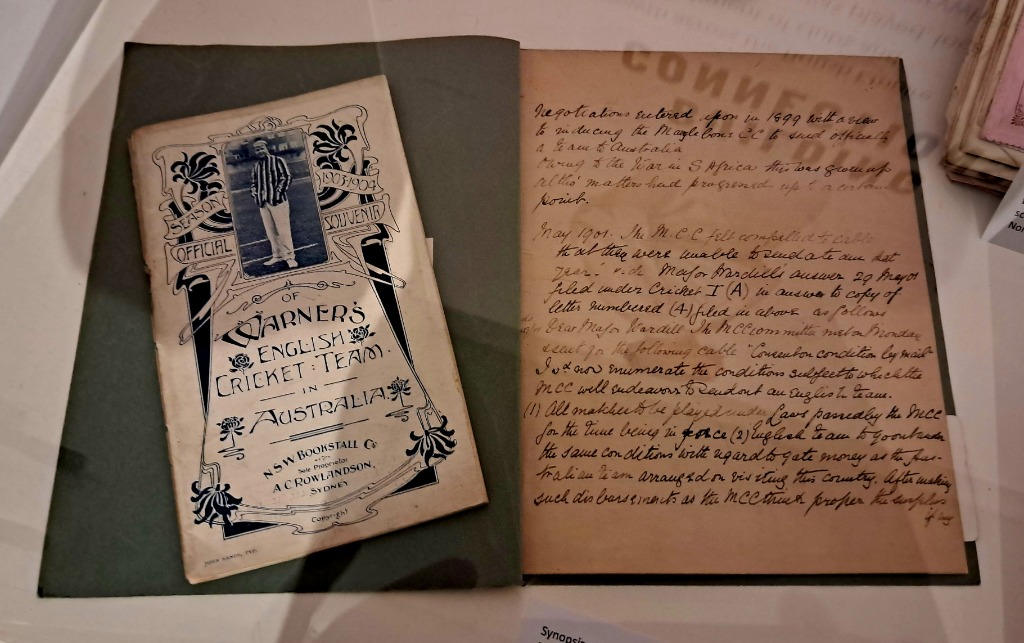 SEASON
1903-1904
OFFICIAL
SOUVENIR
OF
WARNER'S
ENGLISH
CRICKET: TEAM.
IN
AUSTRALIA.
N.S.W BOOKSTALL Co
Sole Proprietor
A.C. ROWLANDSON,
SYDNEY
Copyright
JOHN SANDS, TYP.
Negotiations entered upon in 1899 with a view
to inducing the Marylebone CC to send officially
a Team to Australia
Owing to the War in S Africa this was given up
altho' matters had progressed up to a certain
point.
May 1901. The M.C.C felt compelled to cable
that they were unable to send a team next
year. Vide Major Wardill's answer 29 May
filed under Cricket I (A) in answer to copy of
letter numbered (4) filed in above as follows
Dear Major Wardill The MCC committee met on Monday
& sent for the following cable "Consent on condition by mail"
I now enumerate the conditions subject to which the
MCC will endeavor to send out an English team.
(1) All matches to be played under Laws passed by the MCC
for the time being in force (2) English team to go out under
the same conditions with regard to gate money as the Aus-
tralian team arranged on visiting this country. After making
such disbursements as the MCC think proper the surplus
if any
CONNEC
Synopsis